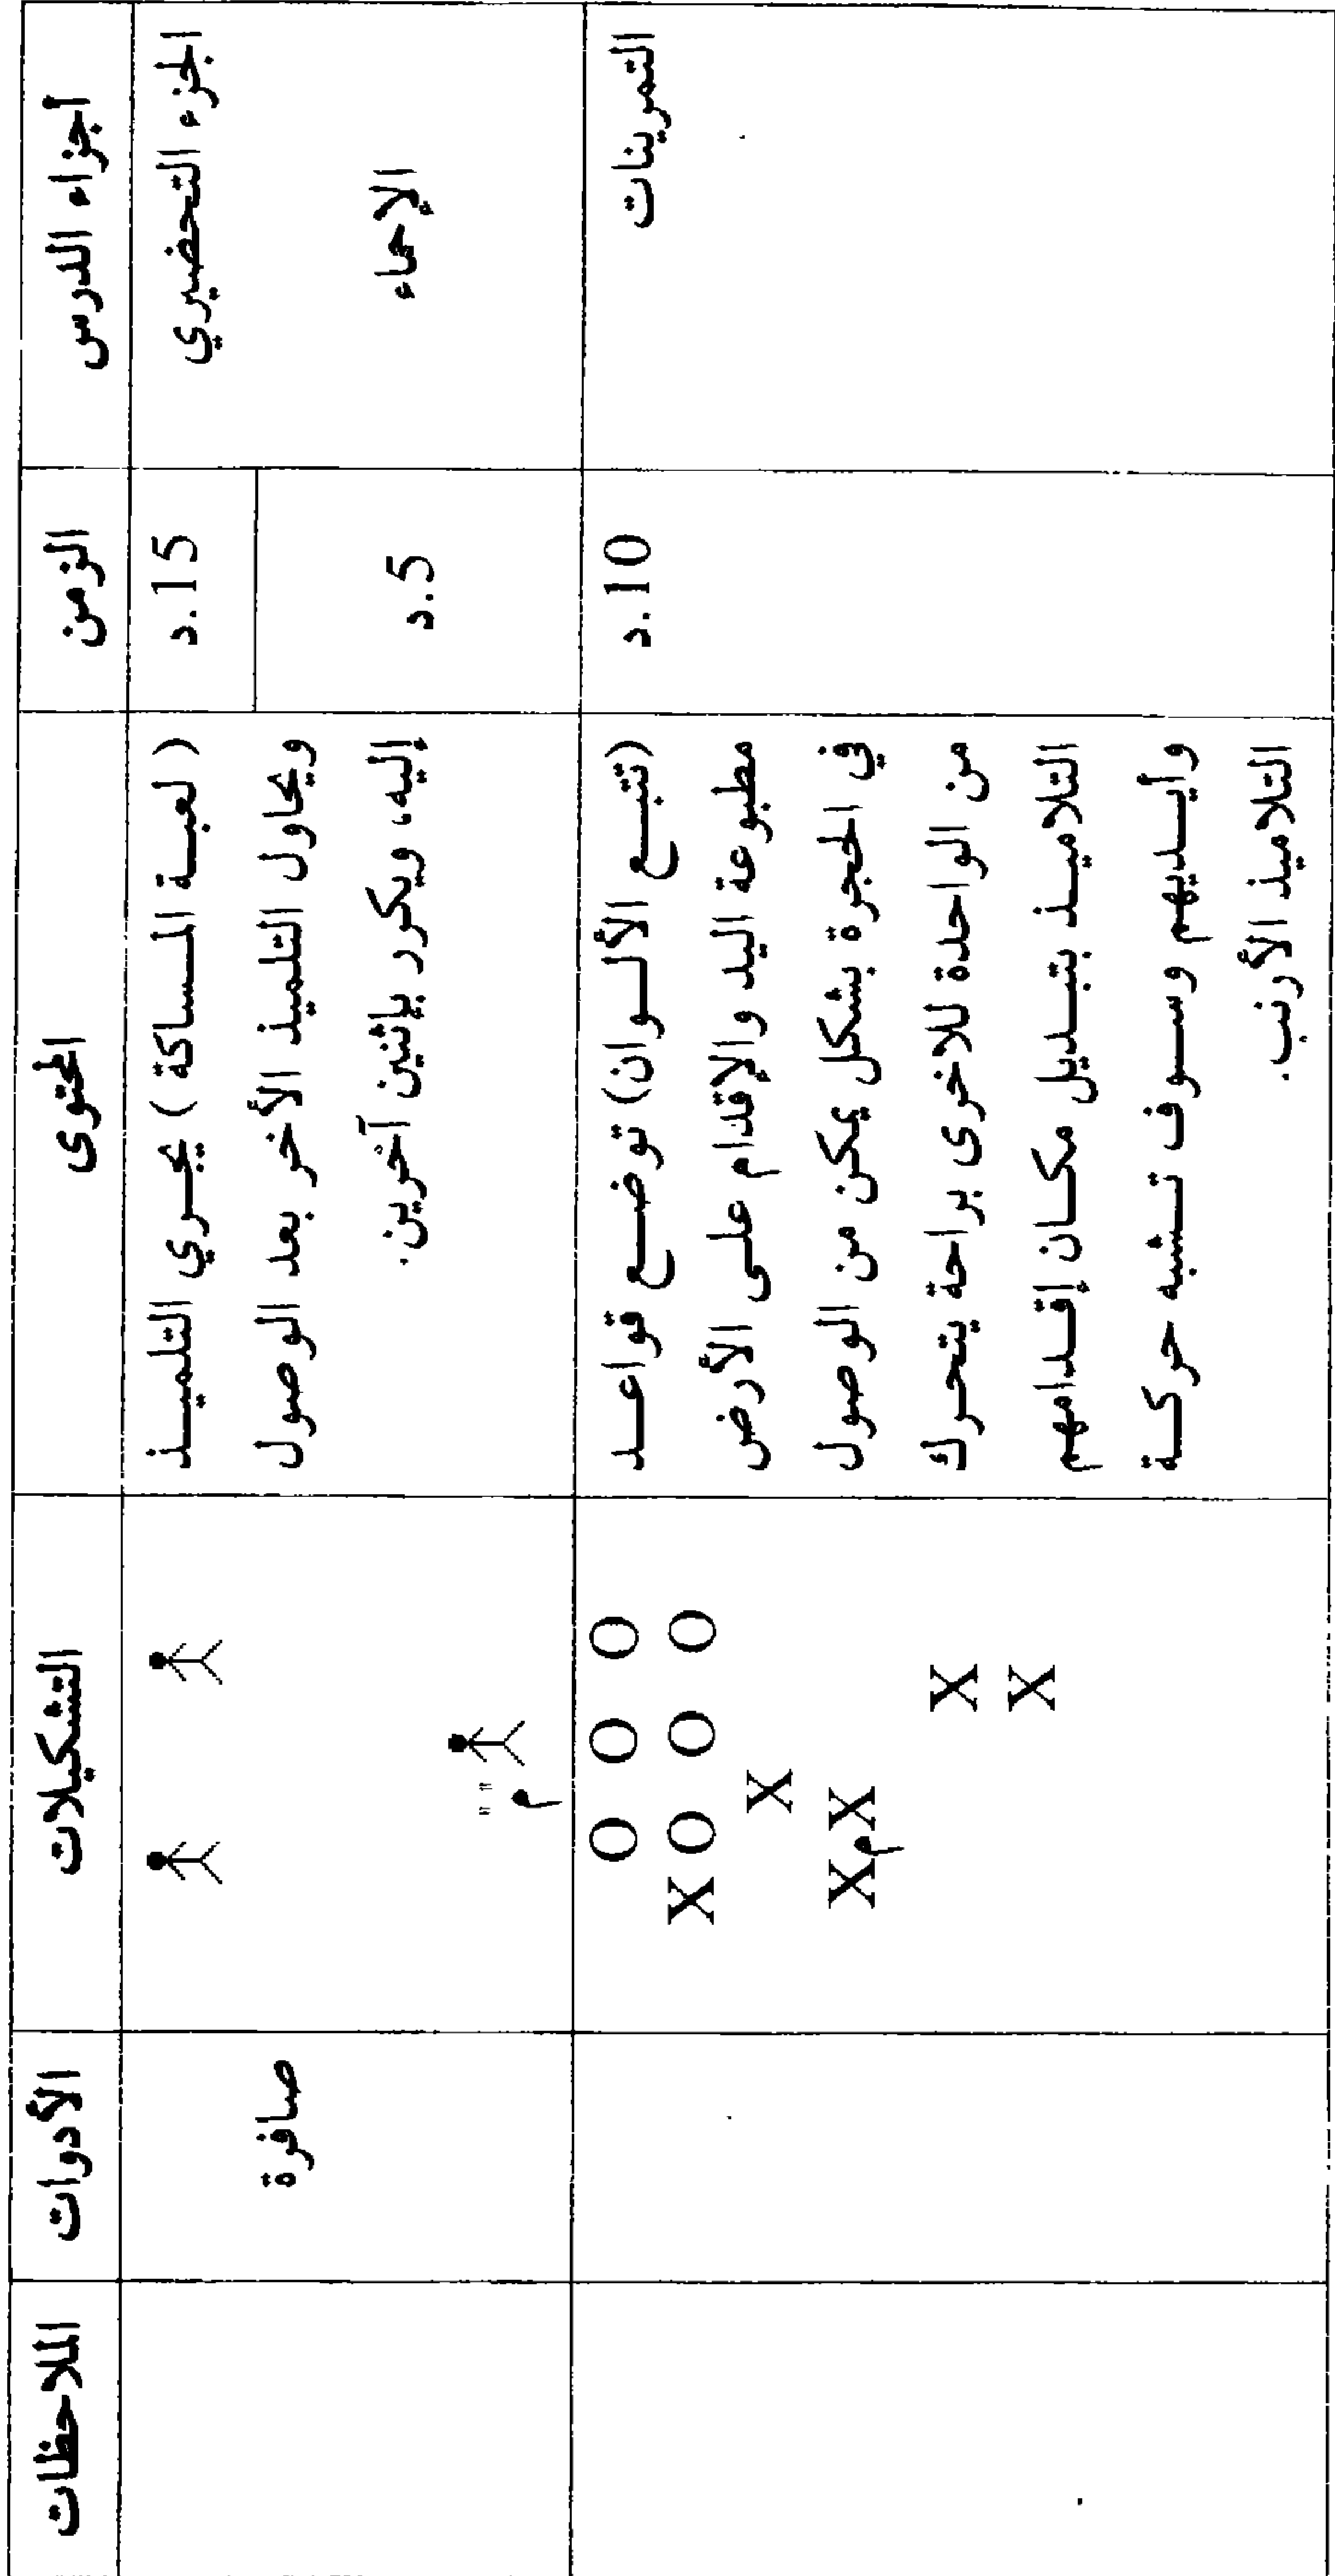 أجزاء الدرس
الزمن
المحتوى
التشكيلات
الأدوات
الملاحظات
الجزء التحضيري
الإحماء
15.د
5.د
( لعبة المساكة ) يجري التلميذ
ويحاول التلميذ الأخر بعد الوصول
إليه، ويكرر بإثنين آخرين.
" "
م
صافرة
التمرينات
10.د
(تتبع الألوان) توضع قواعد
مطبوعة اليد والإقدام على الأرض
في الحجرة بشكل يمكن من الوصول
من الواحدة للاخرى براحة يتحرك
التلاميذ بتبديل مكان إقدامهم
وأيديهم وسوف تشبه حركة
التلاميذ الأرنب.
O O O
X O O O
X
X م X
X
X